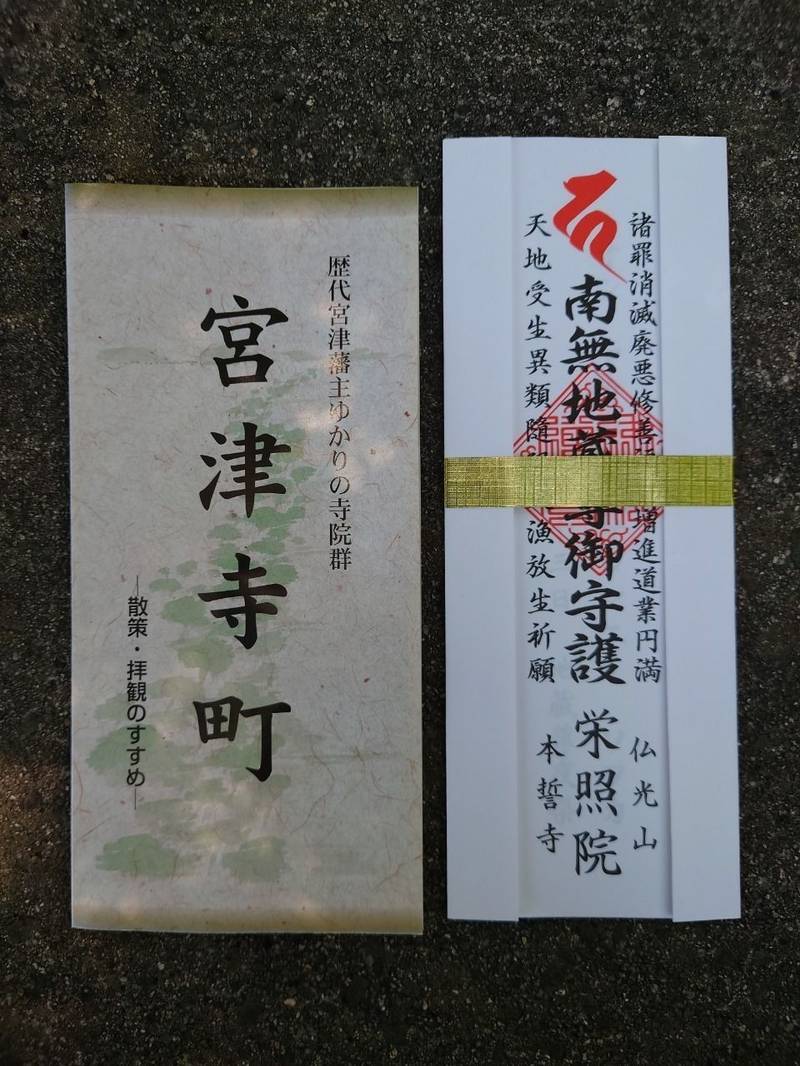 歴代宮津藩主ゆかりの寺院群
宮津寺町
―散策・拝観のすすめ―
諸罪消滅廃悪修善
増進道業円満
南無地蔵
尊御守護
天地受生異類随
漁放生祈願
仏光山
栄照院
本誓寺